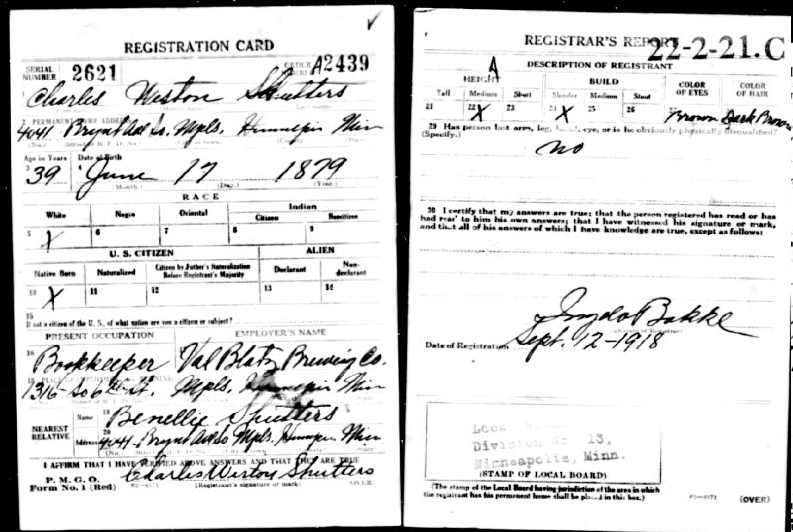 REGISTRATION CARD
SERIAL NUMBER 2621
ORDER NUMBER A2439
1 Charles Weston Shutters
2 PERMANENT HOME ADDRESS
4041 Bryant Av So. Mpls. Hennepin Min
Age in Years Date of Birth
39 June 17 1879
(Month.) (Day.) (Year.)
RACE
White Negro Oriental Indian
Citizen Noncitizen
5 X 6 7 8 9
U. S. CITIZEN ALIEN
Native Born Naturalized Citizen by Father's Naturalization Before Registrant's Majority Declarant Non-declarant
10 X 11 12 13 14
15
If not a citizen of the U. S., of what nation are you a citizen or subject?
PRESENT OCCUPATION EMPLOYER'S NAME
16 Bookkeeper Val Blatz Brewing Co.
1316 So 6th St. Mpls. Hennepin Min
NEAREST RELATIVE
Name 19 Benellie Shutters
Address 20 4041 Bryant Av So Mpls. Hennepin Min
I AFFIRM THAT I HAVE VERIFIED ABOVE ANSWERS AND THAT THEY ARE TRUE
P. M. G. O.
Form No. 1 (Red)
Charles Weston Shutters
(Registrant's signature or mark)
REGISTRAR'S REPORT 22-2-21.C
DESCRIPTION OF REGISTRANT
A
HEIGHT BUILD COLOR OF EYES COLOR OF HAIR
Tall Medium Short Slender Medium Stout
21 22 X 23 24 X 25 26 Brown Dark Brown
29 Has person lost arm, leg, hand, eye, or is he obviously physically disqualified?
(Specify.)
no
30 I certify that my answers are true; that the person registered has read or has
had read to him his own answers; that I have witnessed his signature or mark,
and that all of his answers of which I have knowledge are true, except as follows:
Bakke
Date of Registration Sept. 12-1918
Local
Division No 13,
Minneapolis, Minn.
(STAMP OF LOCAL BOARD)
(The stamp of the Local Board having jurisdiction of the area in which
the registrant has his permanent home shall be placed in this box.)
(OVER)